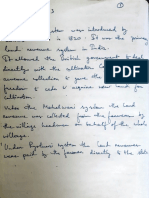 3 ①
was introduced by
in 1820. It was the primary
land revenue system in India.
It allowed the British government to deal
directly with the cultivator
revenue collection to give the
freedom to cede or acquire new land for
cultivation.
Under the Mahalwari system the land
revenue was collected from the farmers by
the village headman on behalf of the whole
village.
Under Ryotwari system the land revenue
was paid by the farmer directly to the state